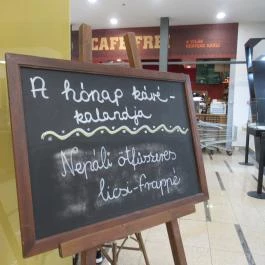 CAFE FREI
A VILÁG
A hónap kávé-
kalandja
Nepáli ötfűszeres
licsi-frappé